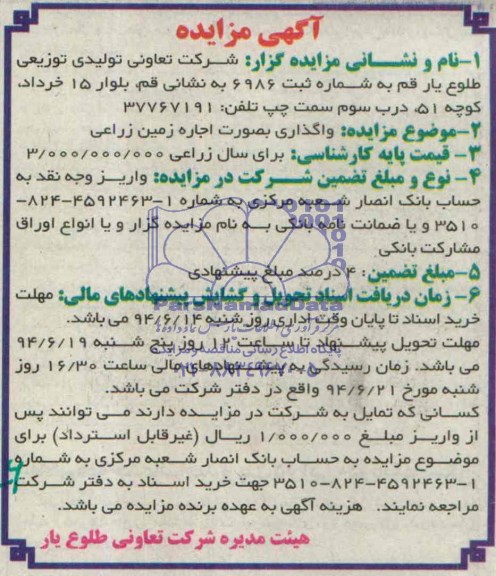 آگهی مزایده
۱-نام و نشـــانی مزایده گزار: شــرکت تعاونی تولیدی توزیعی
طلوع یار قم به شـــماره ثبت ۶۹۸۶ به نشانی قم، بلوار ۱۵ خرداد،
کوچه ۵۱، درب سوم سمت چپ تلفن: ۳۷۷۶۷۱۹۱
۲-موضوع مزایده: واگذاری بصورت اجاره زمین زراعی
۳- قیمت پایه کارشناسی: برای سال زراعی ۳/۰۰۰/۰۰۰/۰۰۰
۴- نوع و مبلغ تضمین شـــرکت در مزایده: واریـز وجه نقد به
حساب بانک انصار شـعبه مرکزی به شماره ۱-۴۵۹۲۴۶۳-۸۲۴-
۳۵۱۰ و یا ضمانت نامه بانکی بـه نام مزایده گزار و یا انواع اوراق
مشارکت بانکی.
۵-مبلغ تضمین: ۴ درصد مبلغ پیشنهادی
۶- زمان دریافت اسناد تحویل و گشایش پیشنهادهای مالی: مهلت
خرید اسناد تا پایان وقت اداری روز شنبه ۹۴/۶/۱۴ می باشد.
مهلت تحویل پیشـــنهاد تا ســاعت ۱۲ روز پنج شـنبه ۹۴/۶/۱۹
می باشد. زمان رسیدگی به پیشنهادهای مالی ساعت ۱۶/۳۰ روز
شنبه مورخ ۹۴/۶/۲۱ واقع در دفتر شرکت می باشد.
کسـانی که تمایل به شـرکت در مزایده دارند مـی توانند پس
از واریـز مبلـغ ۱/۰۰۰/۰۰۰ ریـال (غیرقابل اسـترداد) برای
موضـوع مزایده به حسـاب بانک انصار شـعبه مرکزی به شماره
۱-۴۵۹۲۴۶۳-۸۲۴-۳۵۱۰ جهت خرید اسـناد به دفتر شـرکت
مراجعه نمایند. هزینه آگهی به عهده برنده مزایده می باشد.
هیئت مدیره شرکت تعاونی طلوع یار
ParsNamadData
پایگاه اطلاع رسانی مناقصه و مزایده